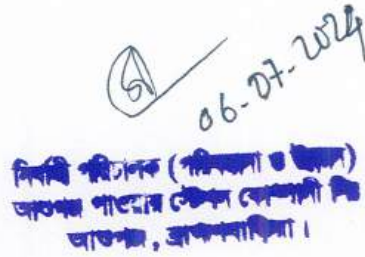 06-07-2024
নির্বাহী পরিচালক (পরিকল্পনা ও উন্নয়ন)
আশুগঞ্জ পাওয়ার স্টেশন কোম্পানী লিঃ
আশুগঞ্জ, ব্রাহ্মণবাড়িয়া।